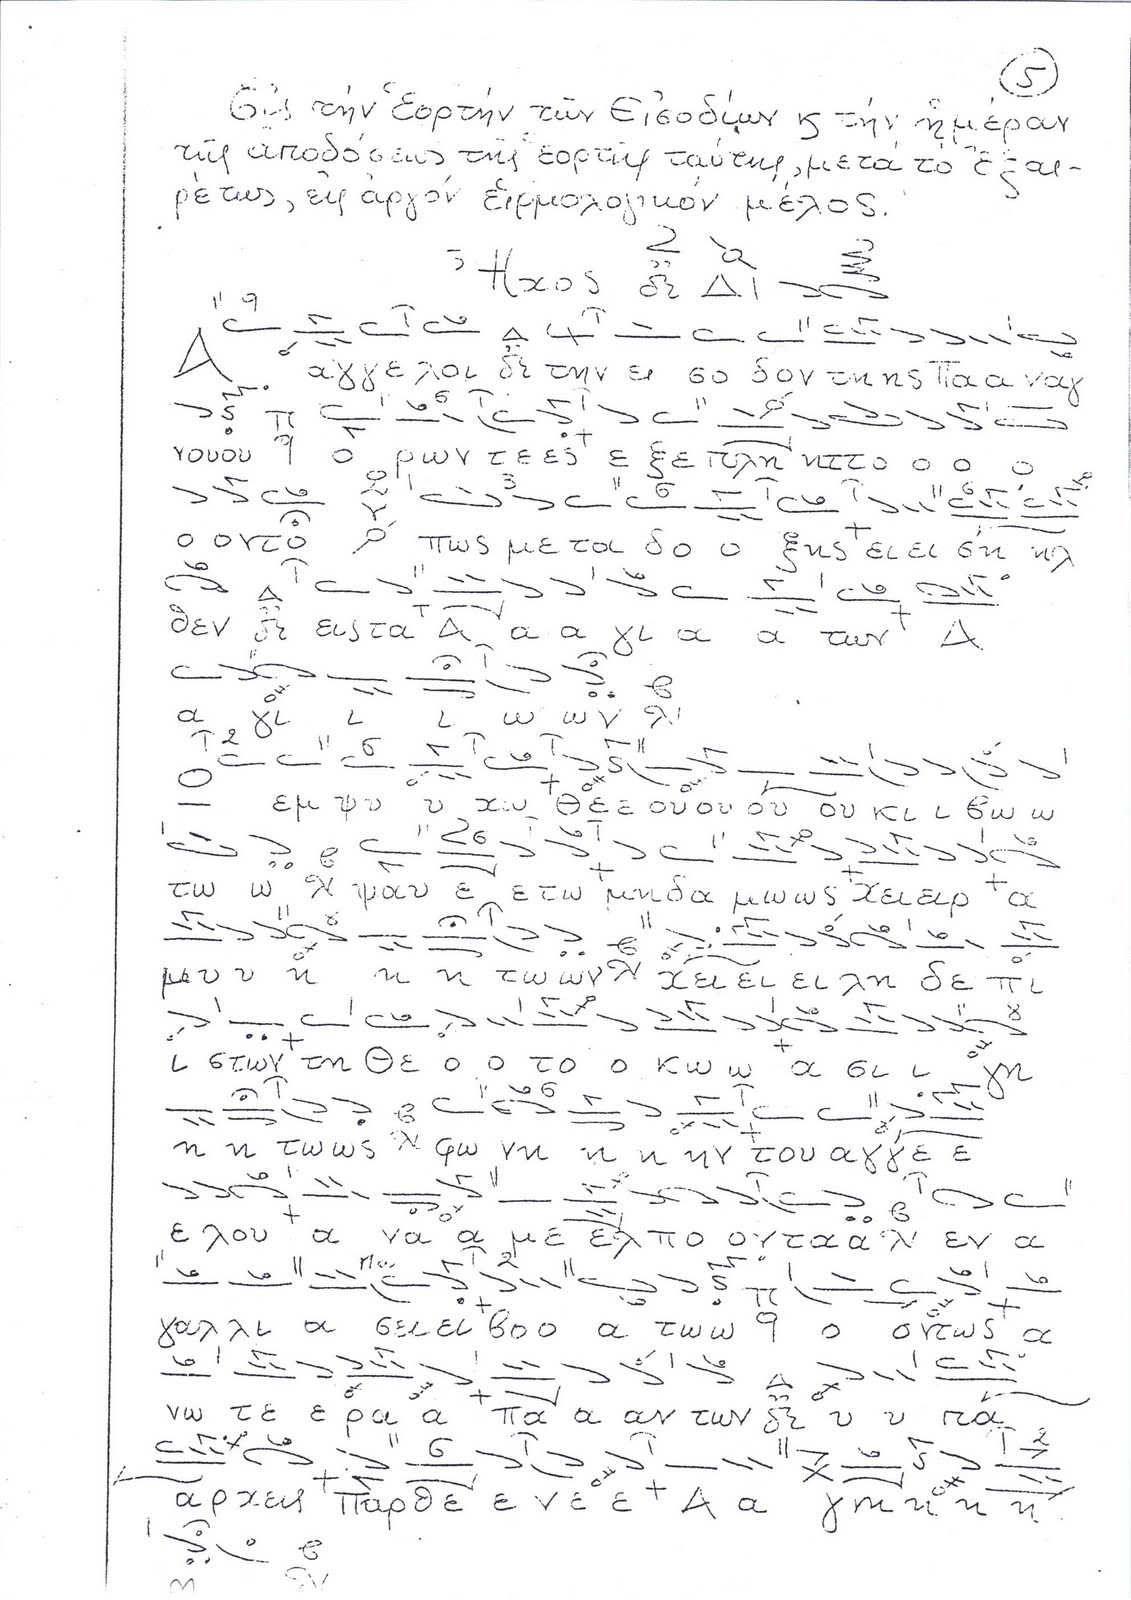 5
Εἰς τήν ἑορτήν τῶν Εἰσοδίων ϗ τήν ἡμέραν
τῆς ἀποδόσεως τῆς ἑορτῆς ταύτης, μετά τό ἐξαι-
ρέτως, εἰς ἀργόν εἱρμολογικόν μέλος.
Ἦχος Δι
Α αγγελοι την ει σο δον της ης Πα α ναγ
νουου ο ρων τε ες ε ξε πλη ηττο ο ο ο
ο οντο πως με τα δο ο ξης ει ει ει σηη ηλ
θεν εις τα Α α α γι α α των Α
α γι ι ι ω ων
Ω εμ ψυ υ χω Θε ε ουουουου ου κι ι βω ω
τω ω ψαυ ε ε τω μηδα μωως χειειρ α
μυ υ η η η τωων χειειειειλη δε πι
ι στων τη Θε ο ο το ο κω ω α σι ι γη
η η τωως φω νη η η ην του αγγε ε
ε λου α να α με ε ελπο ονταα εν α
γαλλι α σειειει βοο α τωω ο οντως α
νω τε ε ρα α πα α αν των υ υ πα
αρχεις παρθε ε νε ε Α α γνη η η η